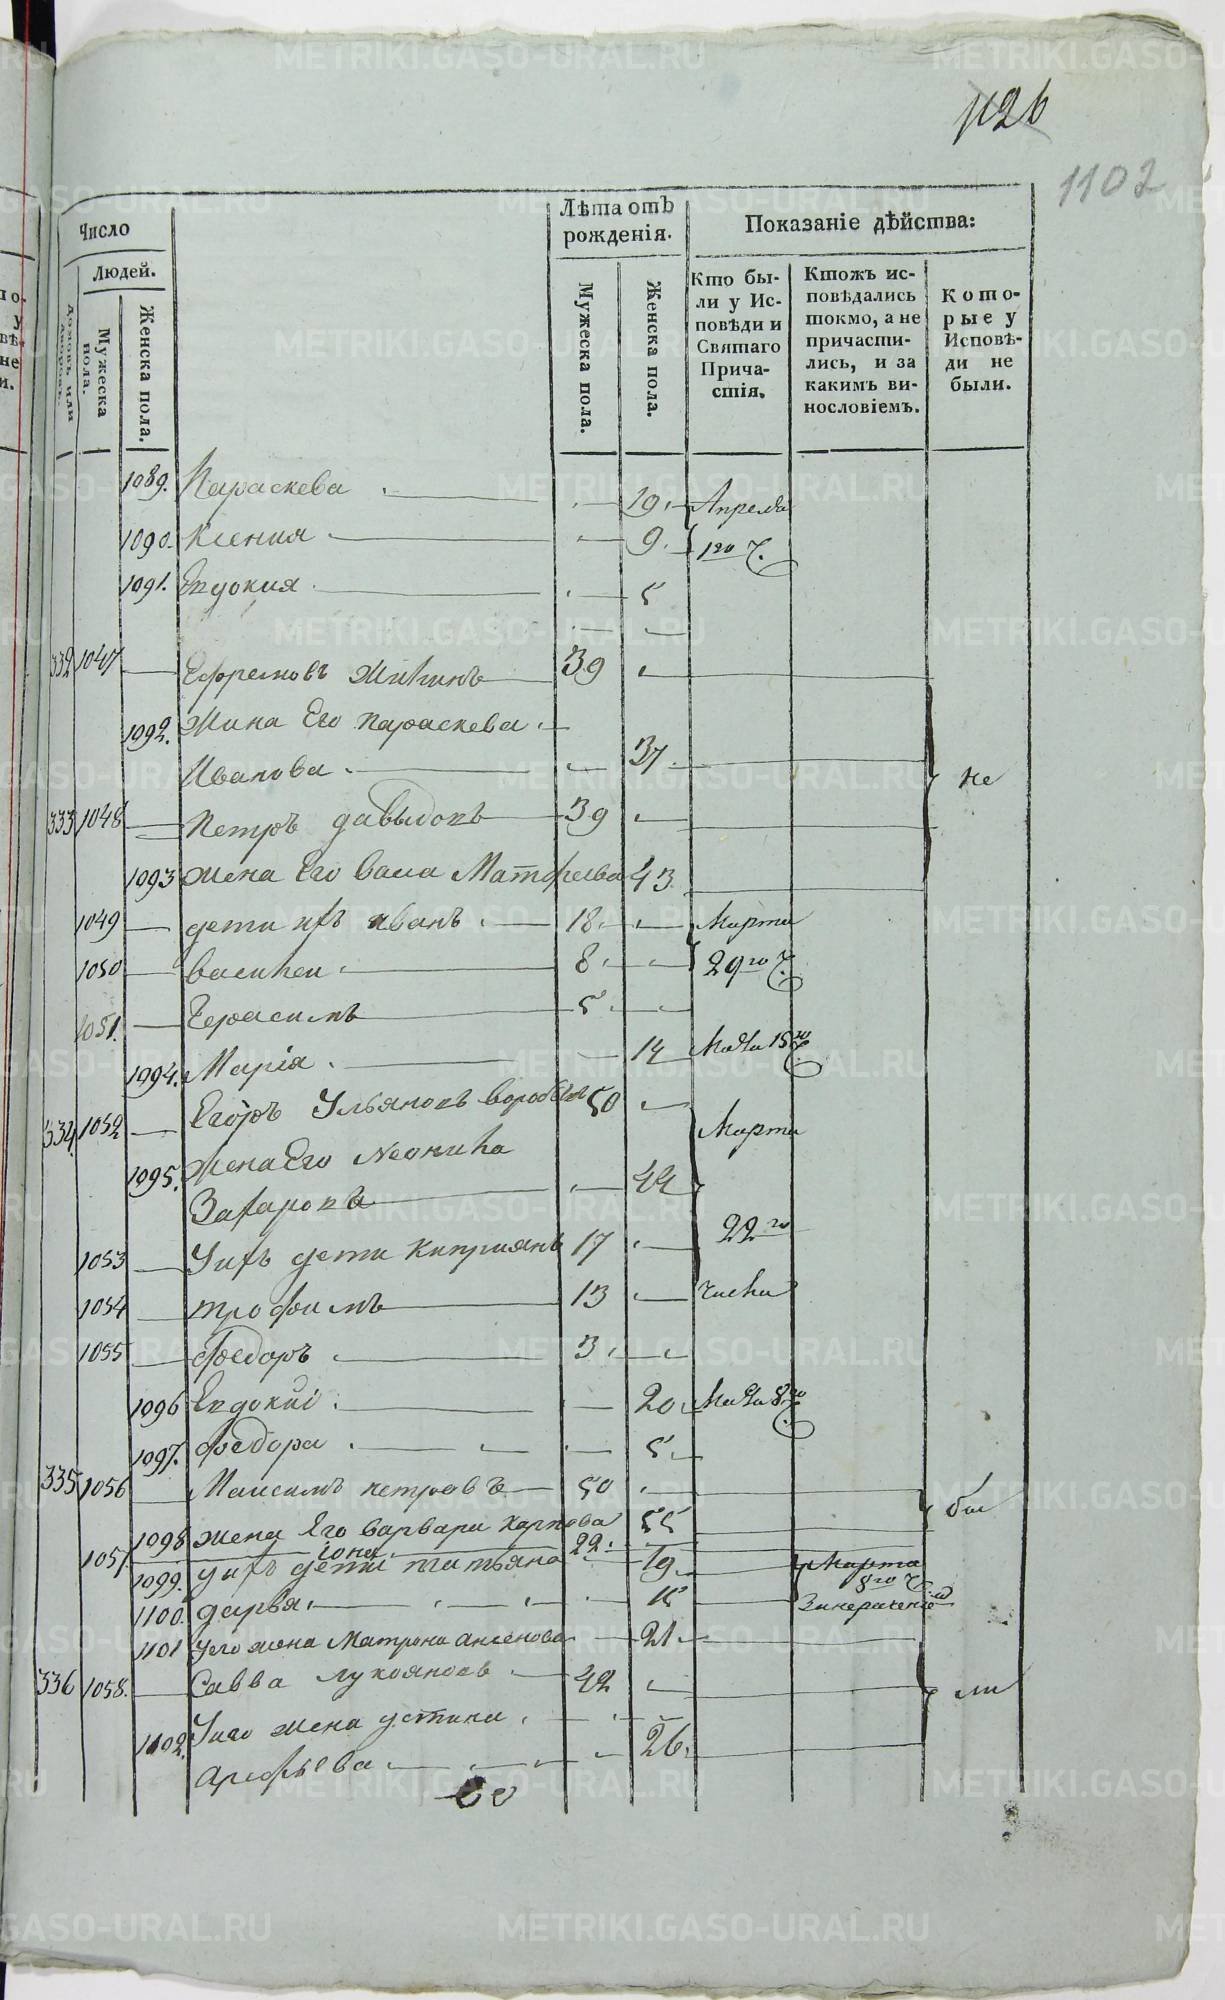 1126
1102
Число
Людей.
Домовъ или дворовъ.
Мужеска пола.
Женска пола.
Лѣта отъ рожденія.
Мужеска пола.
Женска пола.
Показаніе дѣйства:
Кто бы-
ли у Ис-
повѣди и
Святаго
Прича-
стія.
Ктожъ ис-
повѣдались
токмо, а не
причасти-
лись, и за
какимъ ви-
нословіемъ.
Кото-
рые у
Исповѣ-
ди не
были.
1089. Параскева 19. Апреля
1090. Ксения 9. 1го ч.
1091. Евдокия 5
332 1047 Ефремовъ 39
1092. Жина Его Параскева
Иванова 37. не
333 1048 Петръ давыдовъ 39
1093 жена Его Васа Матфеева 43.
1049 дети ихъ иванъ 18. Марта
1050 василеи 8 29го ч.
1051. Герасимъ 5
1094. Марія 14 Маия 15го ч.
334. 1052 Егоръ Ульяновъ 50
Марта
1095. Жена Его
Захарова 44
22го
1053 Унихъ дети Киприянъ 17
1054 трофимъ 13 числа
1055 федоръ 3
1096 Евдокиі 20. Маия 8го ч.
1097. федора 5
335 1056 Максимъ петровъ 50 бы
1098 жена Его варвара Карпова 55
1057 іона 22.
1099. унихъ дети татьяна 19. Марта
8го ч.
1100. дарья 15
1101 унего жена Матрона аксенова 21
336 1058. Савва лукояновъ 42 ли
1102. Унего жена устина
арефьева 26.